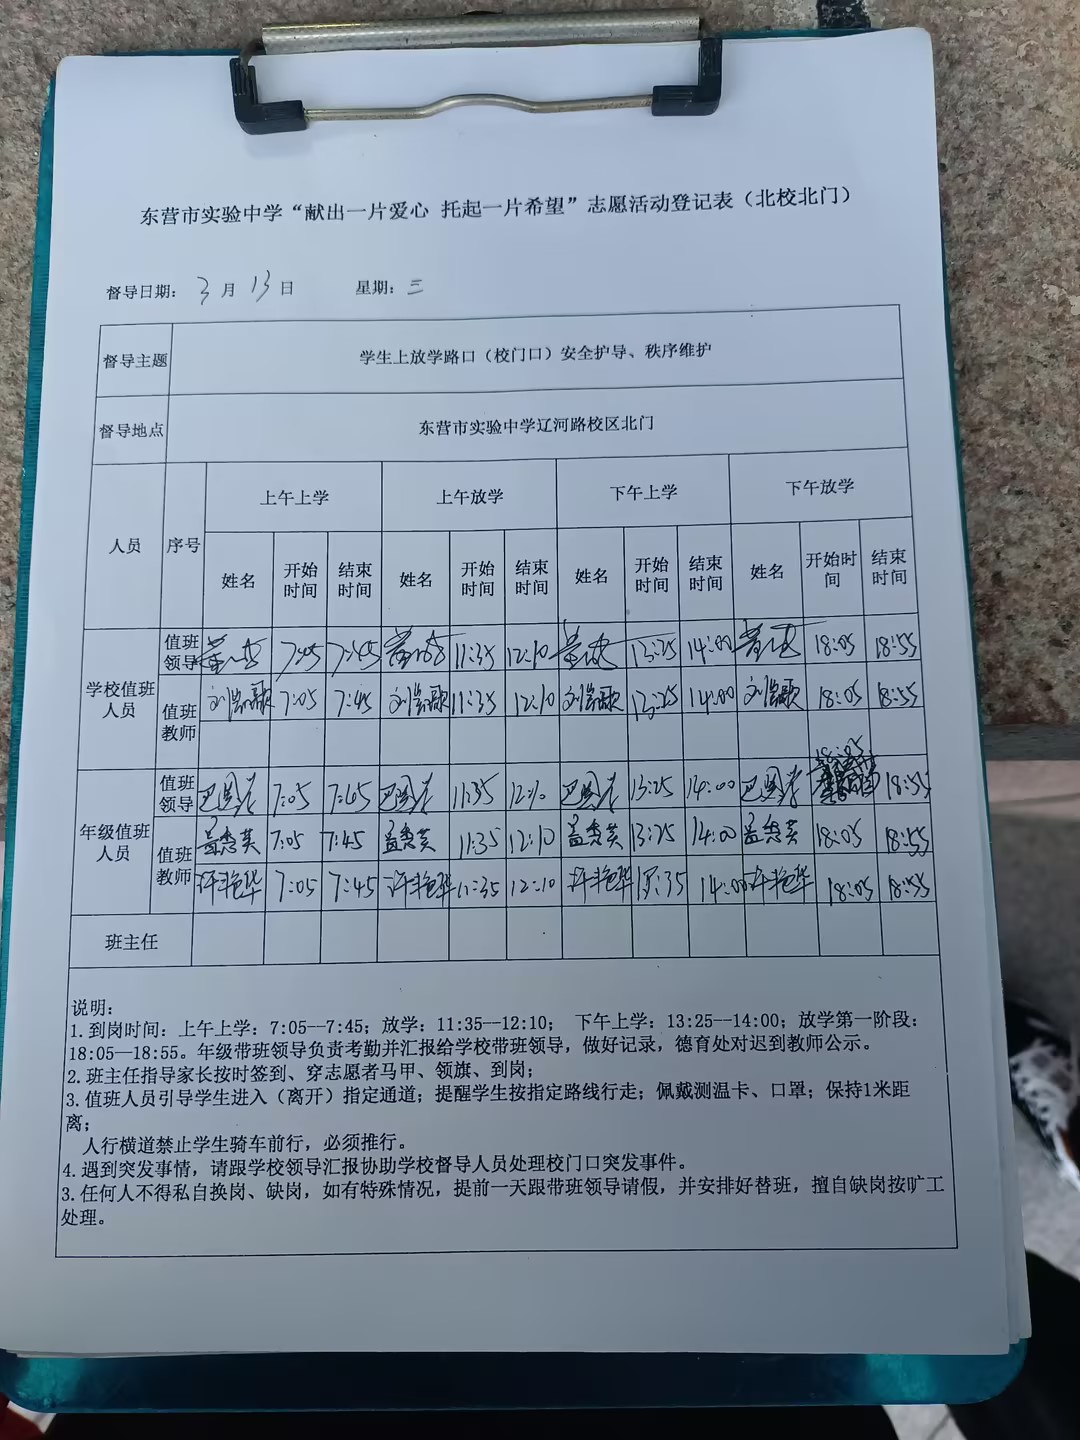 东营市实验中学“献出一片爱心 托起一片希望”志愿活动登记表（北校北门）
督导日期： 3 月 13 日 星期：三
督导主题 学生上放学路口（校门口）安全护导、秩序维护
督导地点 东营市实验中学辽河路校区北门
人员 序号 上午上学 上午放学 下午上学 下午放学
姓名 开始时间 结束时间 姓名 开始时间 结束时间 姓名 开始时间 结束时间 姓名 开始时间 结束时间
学校值班人员 值班领导 7:45 7:45 11:35 12:10 13:25 14:00 18:05 18:55
值班教师 7:05 7:45 11:35 12:10 13:25 14:00 18:05 18:55
年级值班人员 值班领导 7:05 7:45 11:35 13:25 14:00 18:05 18:55
值班教师 盖秀英 7:05 7:45 盖秀英 11:35 12:10 盖秀英 13:25 14:00 盖秀英 18:05 18:55
许艳华 7:05 7:45 许艳华 11:35 12:10 许艳华 14:00 许艳华 18:05 18:55
班主任
说明：
1.到岗时间：上午上学：7:05--7:45；放学：11:35--12:10； 下午上学：13:25--14:00；放学第一阶段：
18:05—18:55。年级带班领导负责考勤并汇报给学校带班领导，做好记录，德育处对迟到教师公示。
2.班主任指导家长按时签到、穿志愿者马甲、领旗、到岗；
3.值班人员引导学生进入（离开）指定通道；提醒学生按指定路线行走；佩戴测温卡、口罩；保持1米距
离；
人行横道禁止学生骑车前行，必须推行。
4.遇到突发事情，请跟学校领导汇报协助学校督导人员处理校门口突发事件。
3.任何人不得私自换岗、缺岗，如有特殊情况，提前一天跟带班领导请假，并安排好替班，擅自缺岗按旷工
处理。